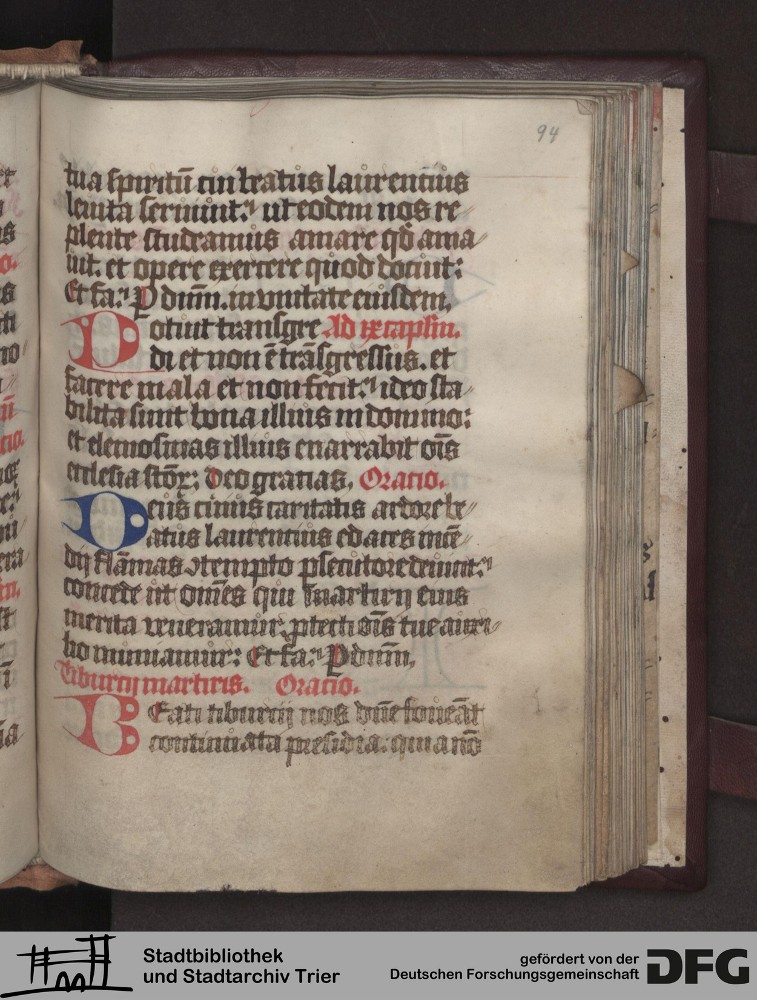 94
tua spiritū cui beatus laurentius
leuita seruiuit. ut eodem nos re
pleute studeamus amare qđ ama
uit. et opere exercere quod docuit:
Et fa. P dnm̄. in vnitate eiusdem.
Potuit transgre Ad ix caplm.
di et non ē trāsgressus. et
facere mala et non fecit. ideo sta
bilita sunt bona illius in domino:
et elemosinas illius enarrabit oīs
ecclesia scōꝝ: Deo gratias. Oracio.
Deus cuius caritatis ardore be
atus laurentius edaces incē
dij flāmas ꝯtempto ꝑsecutore deuicit.
concede ut omēs qui martirij eius
merita veneramur. ꝓtectiōīs tue auxi
lio muniamur: Et fa. P dnm̄.
Tiburcij martiris. Oracio.
Beati tiburcij nos dn̄e foueāt
continuata presidia. quia nō
Stadtbibliothek
und Stadtarchiv Trier
gefördert von der
Deutschen Forschungsgemeinschaft
DFG